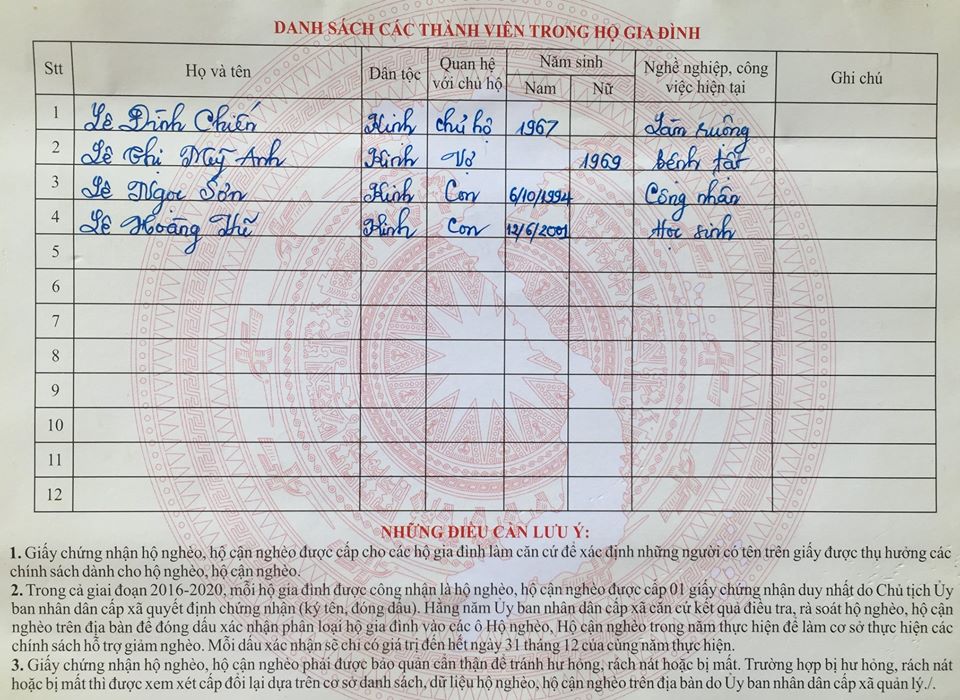 DANH SÁCH CÁC THÀNH VIÊN TRONG HỘ GIA ĐÌNH
Stt Họ và tên Dân tộc Quan hệ với chủ hộ Năm sinh Nam Nữ Nghề nghiệp, công việc hiện tại Ghi chú
1 Lê Đình Chiến Kinh chủ hộ 1967 Làm ruộng
2 Lê Thị Mỹ Anh Kinh Vợ 1969 bệnh tật
3 Lê Ngọc Sơn Kinh Con 6/10/1994 Công nhân
4 Lê Hoàng Vũ Kinh Con 12/6/2001 Học sinh
5
6
7
8
9
10
11
12
NHỮNG ĐIỀU CẦN LƯU Ý:
1. Giấy chứng nhận hộ nghèo, hộ cận nghèo được cấp cho các hộ gia đình làm căn cứ để xác định những người có tên trên giấy được thụ hưởng các
chính sách dành cho hộ nghèo, hộ cận nghèo.
2. Trong cả giai đoạn 2016-2020, mỗi hộ gia đình được công nhận là hộ nghèo, hộ cận nghèo được cấp 01 giấy chứng nhận duy nhất do Chủ tịch Ủy
ban nhân dân cấp xã quyết định chứng nhận (ký tên, đóng dấu). Hằng năm Ủy ban nhân dân cấp xã căn cứ kết quả điều tra, rà soát hộ nghèo, hộ cận
nghèo trên địa bàn để đóng dấu xác nhận phân loại hộ gia đình vào các ô Hộ nghèo, Hộ cận nghèo trong năm thực hiện để làm cơ sở thực hiện các
chính sách hỗ trợ giảm nghèo. Mỗi dấu xác nhận sẽ chỉ có giá trị đến hết ngày 31 tháng 12 của cùng năm thực hiện.
3. Giấy chứng nhận hộ nghèo, hộ cận nghèo phải được bảo quản cẩn thận để tránh hư hỏng, rách nát hoặc bị mất. Trường hợp bị hư hỏng, rách nát
hoặc bị mất thì được xem xét cấp đổi lại dựa trên cơ sở danh sách, dữ liệu hộ nghèo, hộ cận nghèo trên địa bàn do Ủy ban nhân dân cấp xã quản lý./.